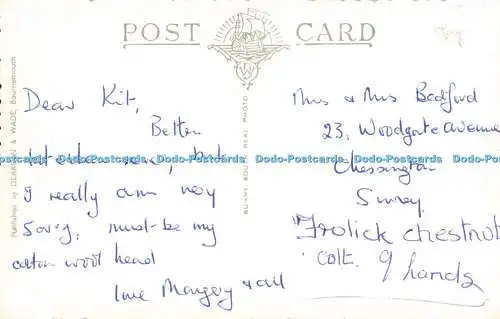 POST CARD
Dear Kit,
Better
late than never, but
I really am very
sorry, must be my
cotton wool head
love Margery & all
Mrs & Mrs Bedford
23, Woodgate Avenue
Chessington
Surrey.
Frolick chestnut
colt. 9 hands
Published by DEARDEN & WADE, Bournemouth
SUNNY SOUTH REAL PHOTO
Dodo-Postcards Dodo-Postcards Dodo-Postcards Dodo-Postcards Dodo-Postcards Dodo-Postcards